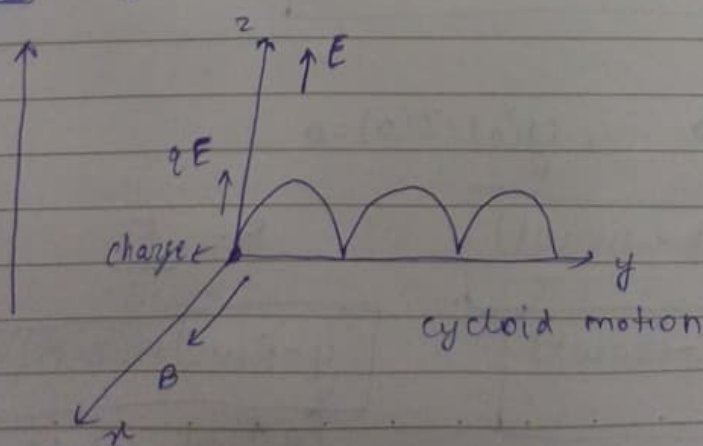 z
E
qE
charge
y
cycloid motion
B
x